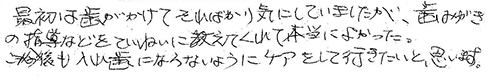 最初は歯がかけてそればかり気にしていましたが、歯みがき
の指導などをていねいに教えてくれて本当によかった。
今後も入れ歯にならないようにケアをして行きたいと思います。